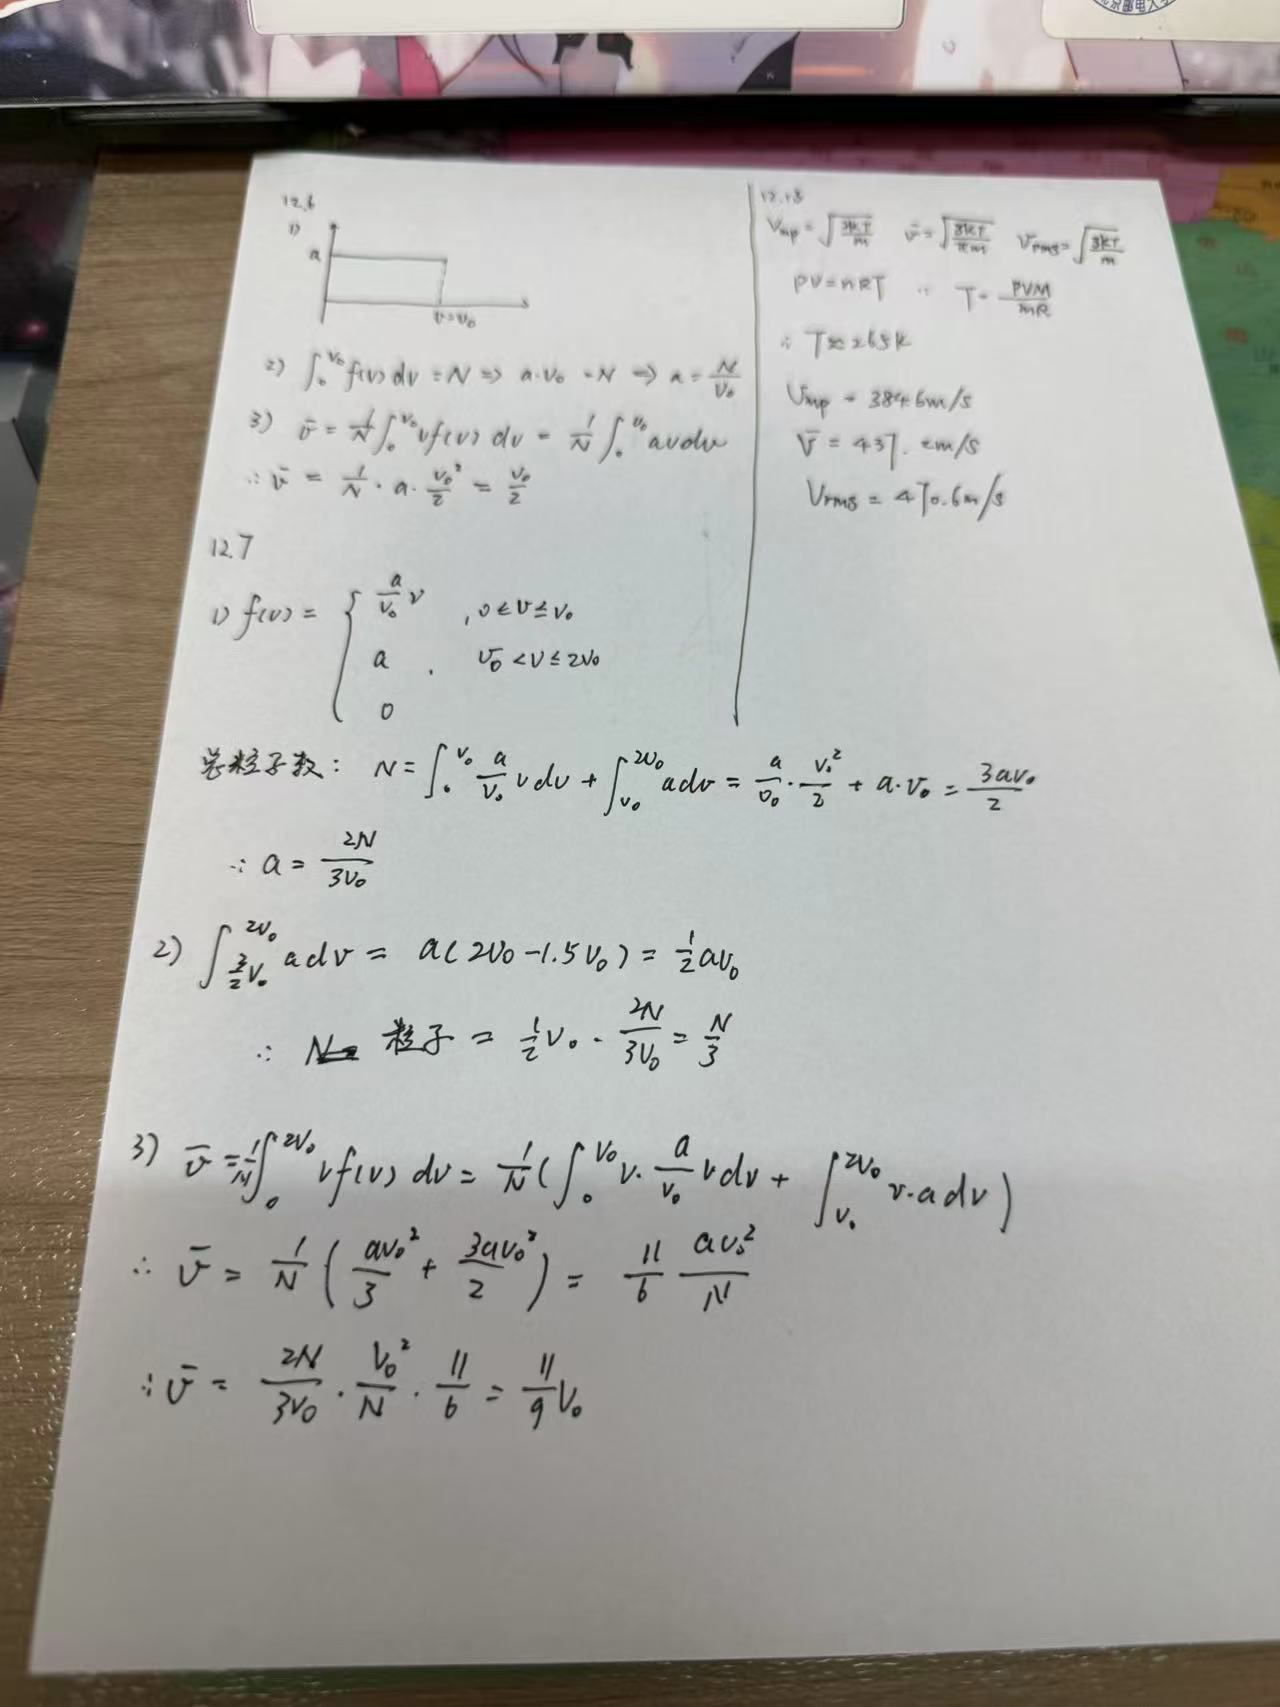 12.6
1)
a
v=v₀
2) ∫₀^v₀ f(v) dv = N ⇒ a·v₀ = N ⇒ a = N/v₀
3) v̄ = 1/N ∫₀^v₀ vf(v) dv = 1/N ∫₀^v₀ avdv
∴ v̄ = 1/N · a · v₀²/2 = v₀/2
12.7
1) f(v) = { a/v₀ v , 0≤v≤v₀
a . v₀<v≤2v₀
0
总粒子数: N = ∫₀^v₀ a/v₀ v dv + ∫_v₀^2v₀ a dv = a/v₀ · v₀²/2 + a·v₀ = 3av₀/2
∴ a = 2N/3v₀
2) ∫_(3/2 v₀)^2v₀ a dv = a(2v₀-1.5v₀) = 1/2 av₀
∴ 粒子 = 1/2 v₀ · 2N/3v₀ = N/3
3) v̄ = 1/N ∫₀^2v₀ vf(v) dv = 1/N (∫₀^v₀ v· a/v₀ v dv + ∫_v₀^2v₀ v·a dv)
∴ v̄ = 1/N (av₀²/3 + 3av₀²/2) = 11/6 av₀²/N
∴ v̄ = 2N/3v₀ · v₀²/N · 11/6 = 11/9 v₀
v̄ = √(8kT/πm) Vrms = √(3kT/m)
PV=nRT ∵ T = PVM/mR
∴ T≈265K
Vmp = 384.6m/s
v̄ = 437. m/s
Vrms = 470.6m/s